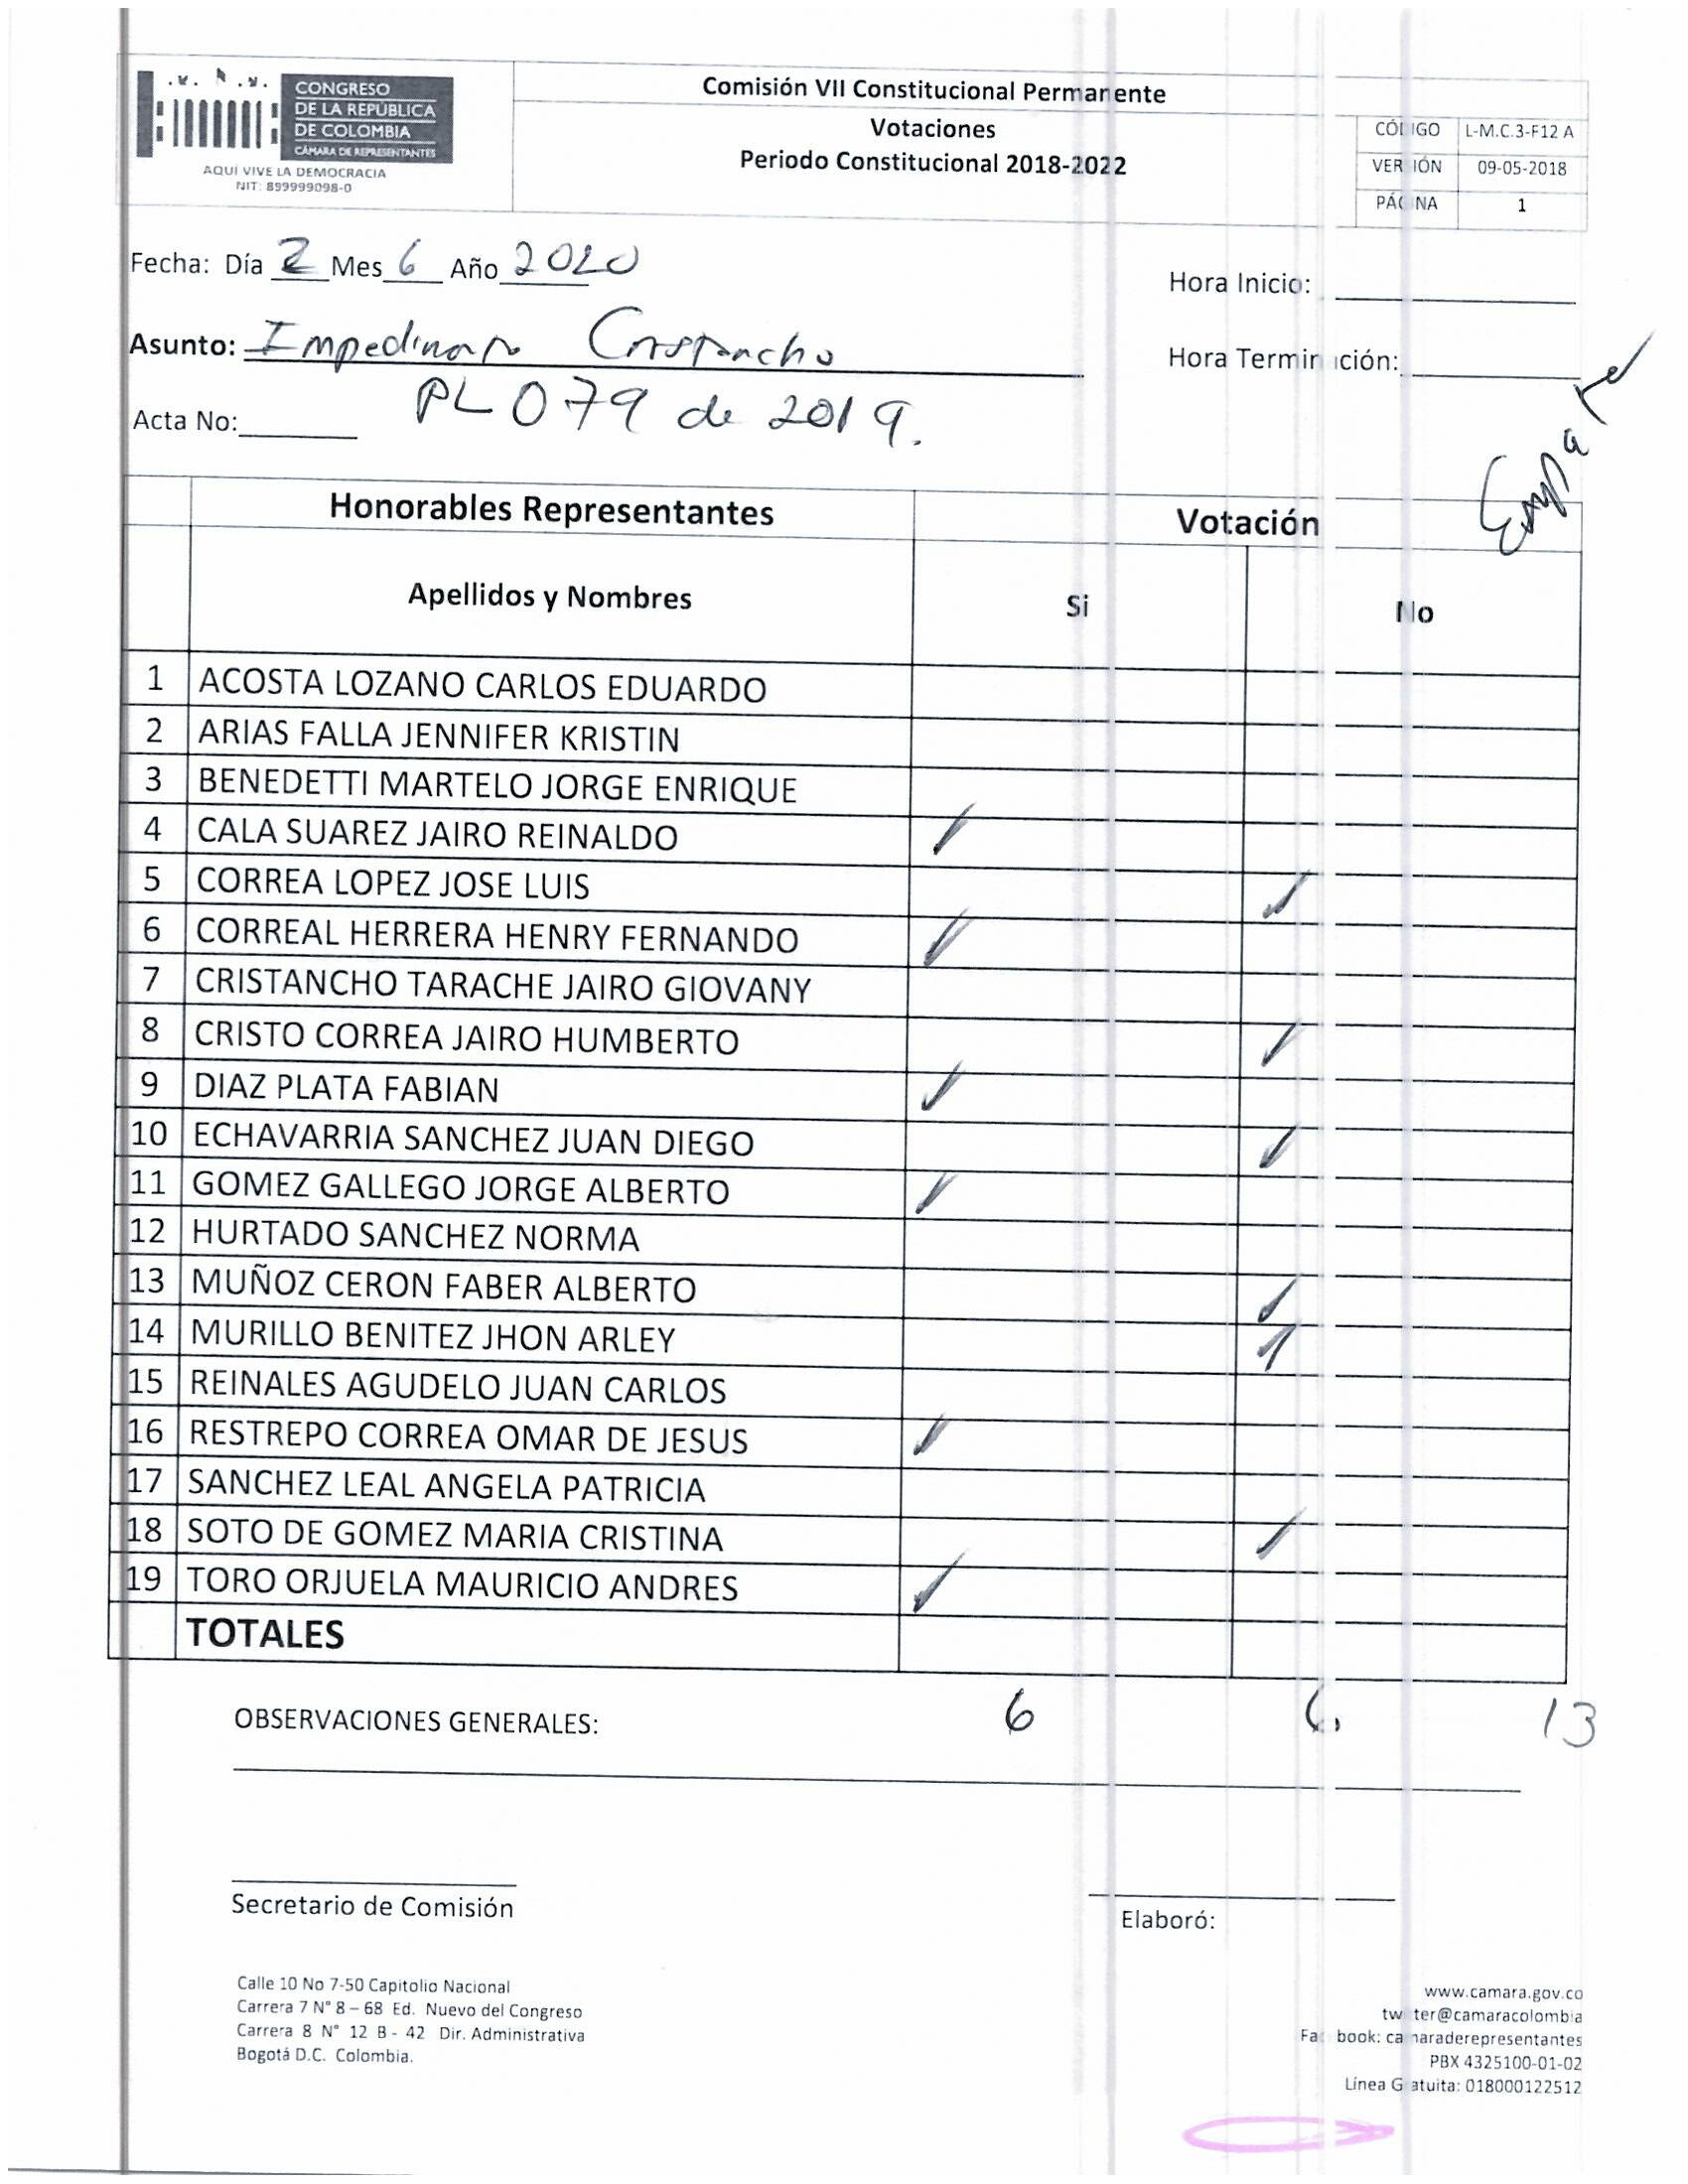 CONGRESO
DE LA REPÚBLICA
DE COLOMBIA
CÁMARA DE REPRESENTANTES
AQUÍ VIVE LA DEMOCRACIA
NIT: 899999098-0
Comisión VII Constitucional Permanente
Votaciones
Periodo Constitucional 2018-2022
CÓDIGO L-M.C.3-F12 A
VERSIÓN 09-05-2018
PÁGINA 1
Fecha: Día 2 Mes 6 Año 2020
Hora Inicio:
Asunto: Cristancho
Hora Terminación:
PL 079 de 2019.
Acta No:
Empate
Honorables Representantes Votación
Apellidos y Nombres Si No
1 ACOSTA LOZANO CARLOS EDUARDO
2 ARIAS FALLA JENNIFER KRISTIN
3 BENEDETTI MARTELO JORGE ENRIQUE
4 CALA SUAREZ JAIRO REINALDO ✓
5 CORREA LOPEZ JOSE LUIS ✓
6 CORREAL HERRERA HENRY FERNANDO ✓
7 CRISTANCHO TARACHE JAIRO GIOVANY
8 CRISTO CORREA JAIRO HUMBERTO ✓
9 DIAZ PLATA FABIAN ✓
10 ECHAVARRIA SANCHEZ JUAN DIEGO ✓
11 GOMEZ GALLEGO JORGE ALBERTO ✓
12 HURTADO SANCHEZ NORMA
13 MUÑOZ CERON FABER ALBERTO ✓
14 MURILLO BENITEZ JHON ARLEY ✓
15 REINALES AGUDELO JUAN CARLOS
16 RESTREPO CORREA OMAR DE JESUS ✓
17 SANCHEZ LEAL ANGELA PATRICIA
18 SOTO DE GOMEZ MARIA CRISTINA ✓
19 TORO ORJUELA MAURICIO ANDRES ✓
TOTALES
OBSERVACIONES GENERALES: 6 6 13
Secretario de Comisión
Elaboró:
Calle 10 No 7-50 Capitolio Nacional
Carrera 7 N° 8 – 68 Ed. Nuevo del Congreso
Carrera 8 N° 12 B - 42 Dir. Administrativa
Bogotá D.C. Colombia.
www.camara.gov.co
twitter@camaracolombia
Facebook: camaraderepresentantes
PBX 4325100-01-02
Línea Gratuita: 018000122512